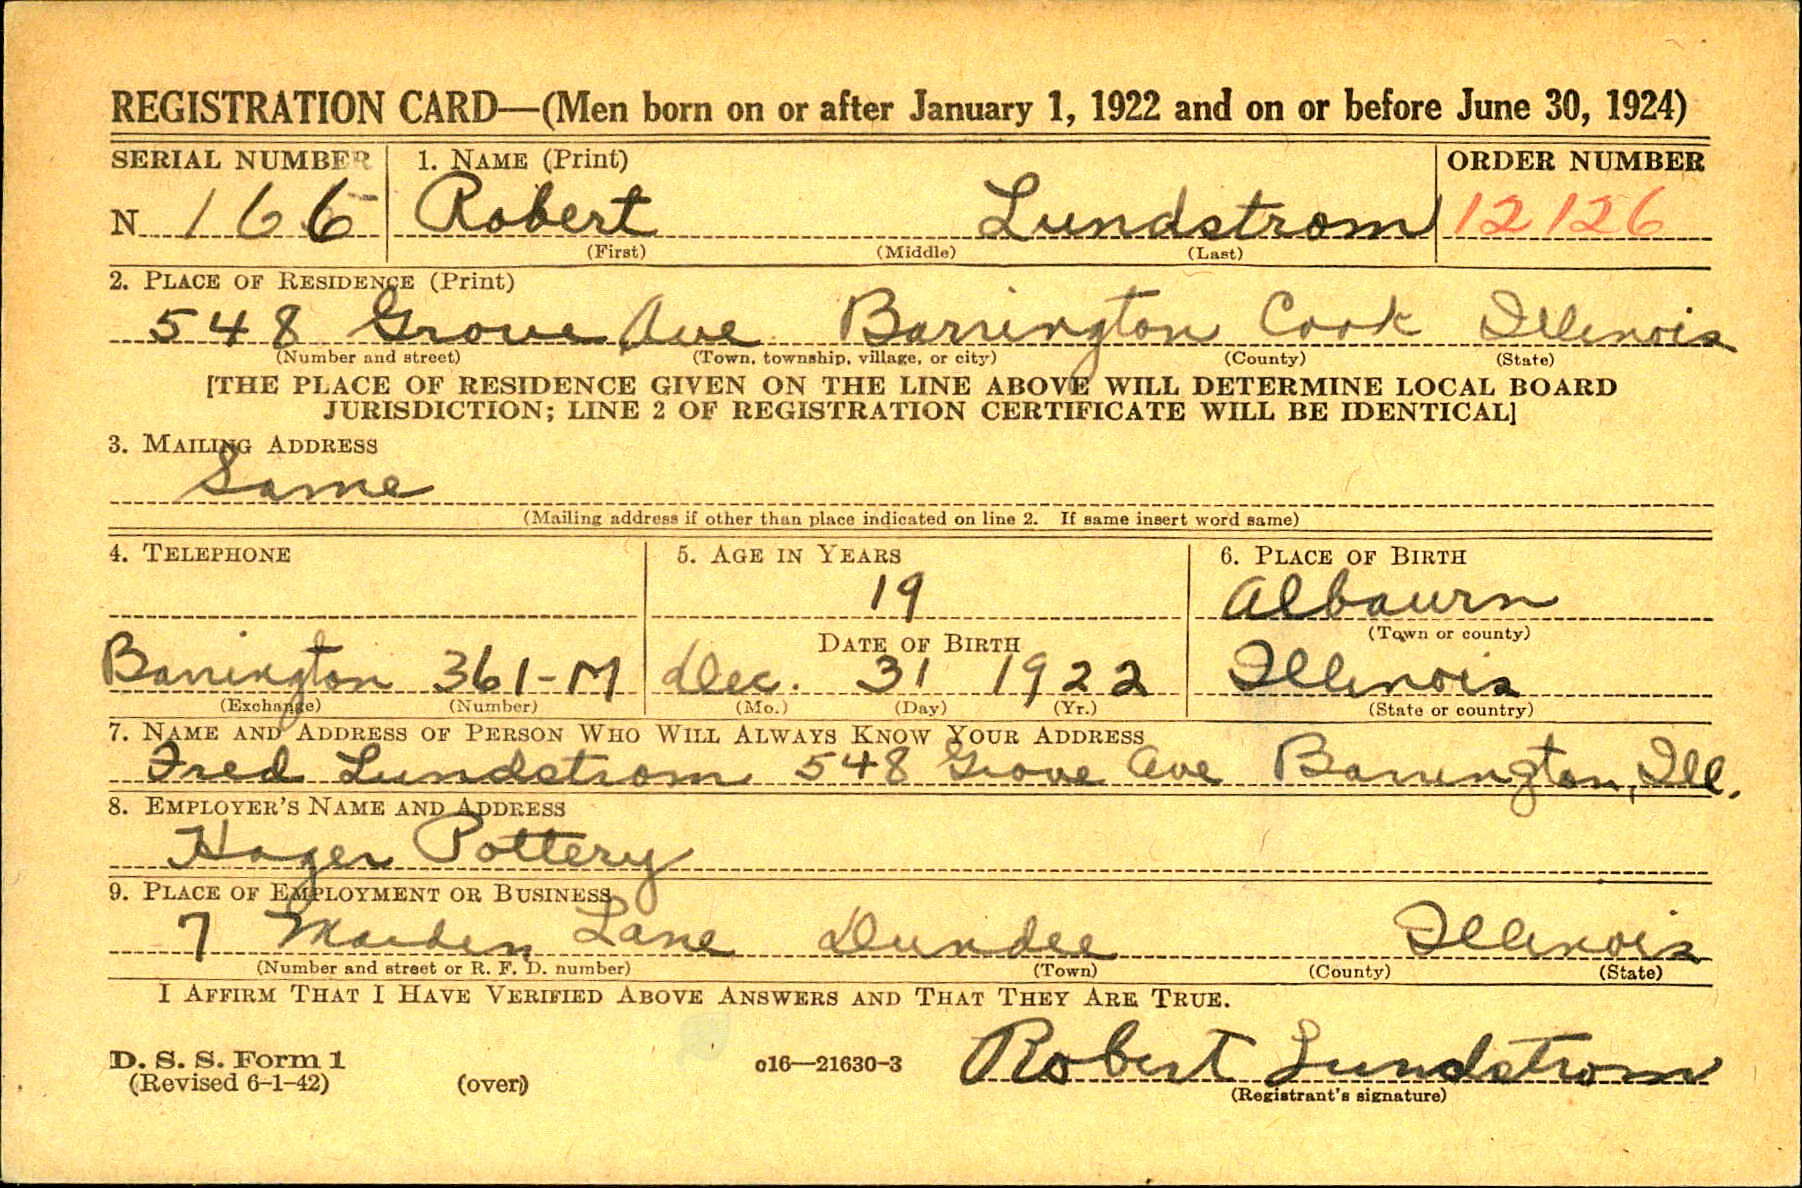 REGISTRATION CARD—(Men born on or after January 1, 1922 and on or before June 30, 1924)
SERIAL NUMBER 1. NAME (Print) ORDER NUMBER
N 166 Robert Lundstrom 12126
(First) (Middle) (Last)
2. PLACE OF RESIDENCE (Print)
548 Grove Ave Barrington Cook Illinois
(Number and street) (Town, township, village, or city) (County) (State)
[THE PLACE OF RESIDENCE GIVEN ON THE LINE ABOVE WILL DETERMINE LOCAL BOARD
JURISDICTION; LINE 2 OF REGISTRATION CERTIFICATE WILL BE IDENTICAL]
3. MAILING ADDRESS
Same
(Mailing address if other than place indicated on line 2. If same insert word same)
4. TELEPHONE 5. AGE IN YEARS 6. PLACE OF BIRTH
19 Albourn
DATE OF BIRTH (Town or county)
Barrington 361-M Dec. 31 1922 Illinois
(Exchange) (Number) (Mo.) (Day) (Yr.) (State or country)
7. NAME AND ADDRESS OF PERSON WHO WILL ALWAYS KNOW YOUR ADDRESS
Fred Lundstrom 548 Grove Ave Barrington, Ill.
8. EMPLOYER'S NAME AND ADDRESS
Hager Pottery
9. PLACE OF EMPLOYMENT OR BUSINESS
7 Maiden Lane Dundee Illinois
(Number and street or R. F. D. number) (Town) (County) (State)
I AFFIRM THAT I HAVE VERIFIED ABOVE ANSWERS AND THAT THEY ARE TRUE.
D. S. S. Form 1
(Revised 6-1-42) (over) c16—21630-3 Robert Lundstrom
(Registrant's signature)